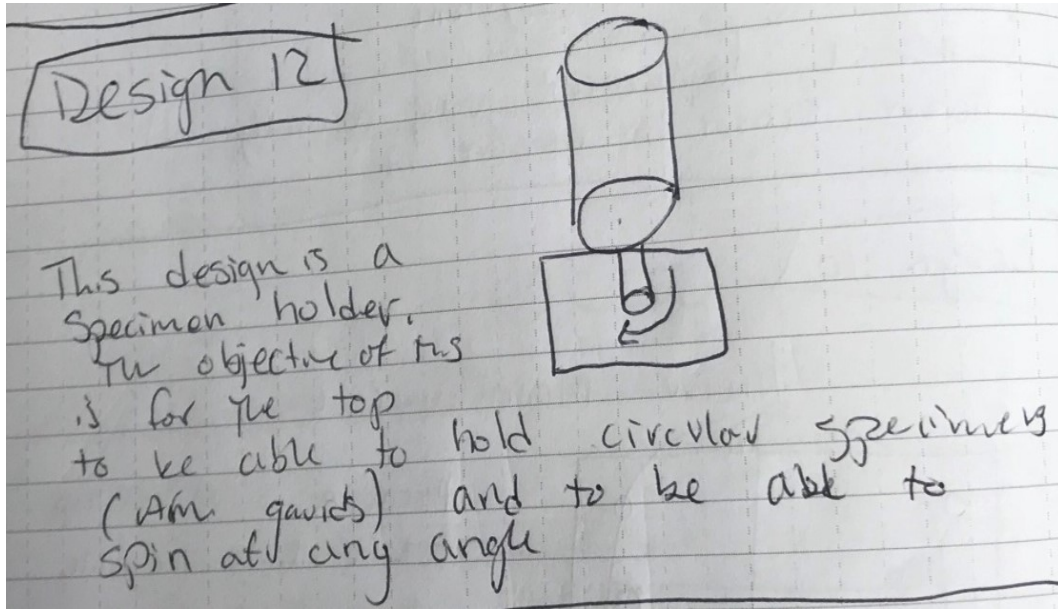 Design 12
This design is a
Specimen holder.
The objective of this
is for the top
to be able to hold circular specimens
(Am) and to be able to
spin at any angle